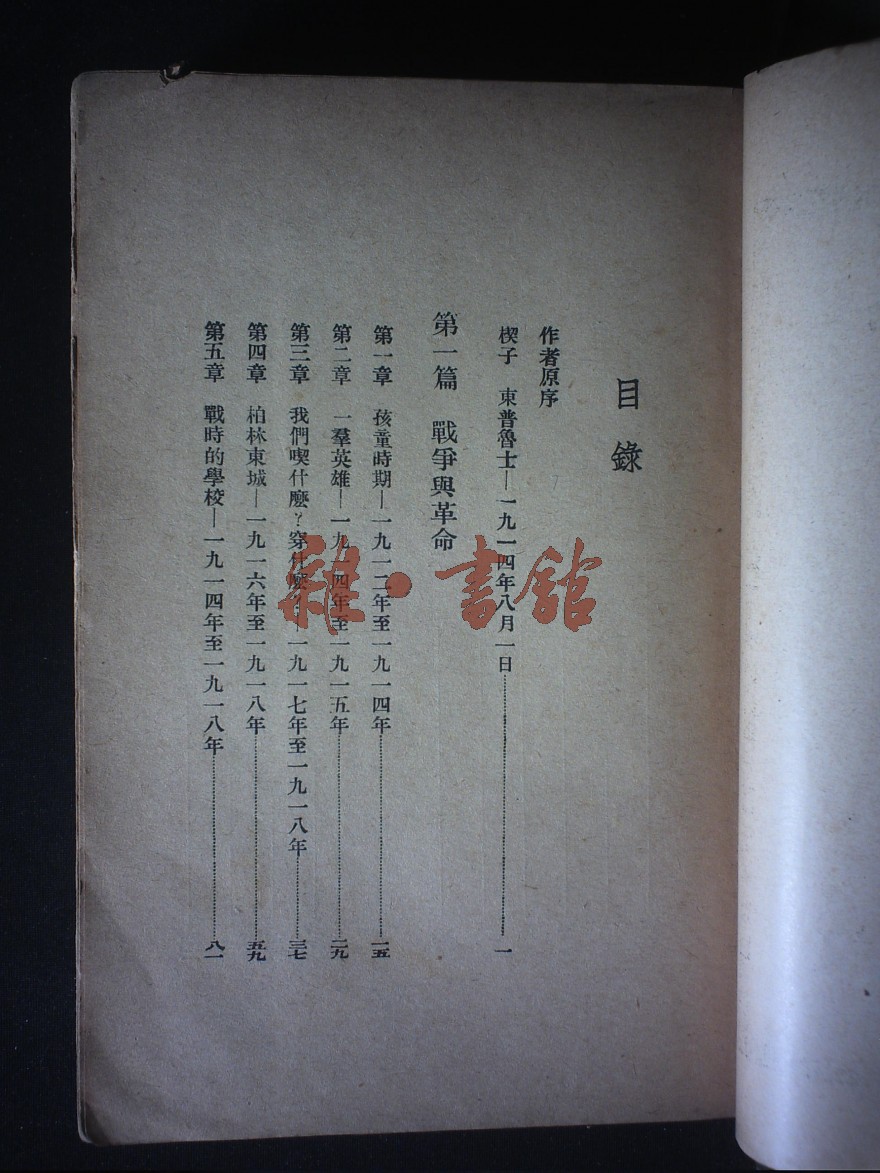 目錄
作者原序
楔子　東普魯士—一九一四年八月一日………一
第一篇　戰爭與革命
第一章　孩童時期—一九一二年至一九一四年………一五
第二章　一羣英雄—一九一四年至一九一五年………二九
第三章　我們喫什麼？穿什麼？—一九一七年至一九一八年………三七
第四章　柏林東城—一九一六年至一九一八年………五九
第五章　戰時的學校—一九一四年至一九一八年………八一
雜·書館